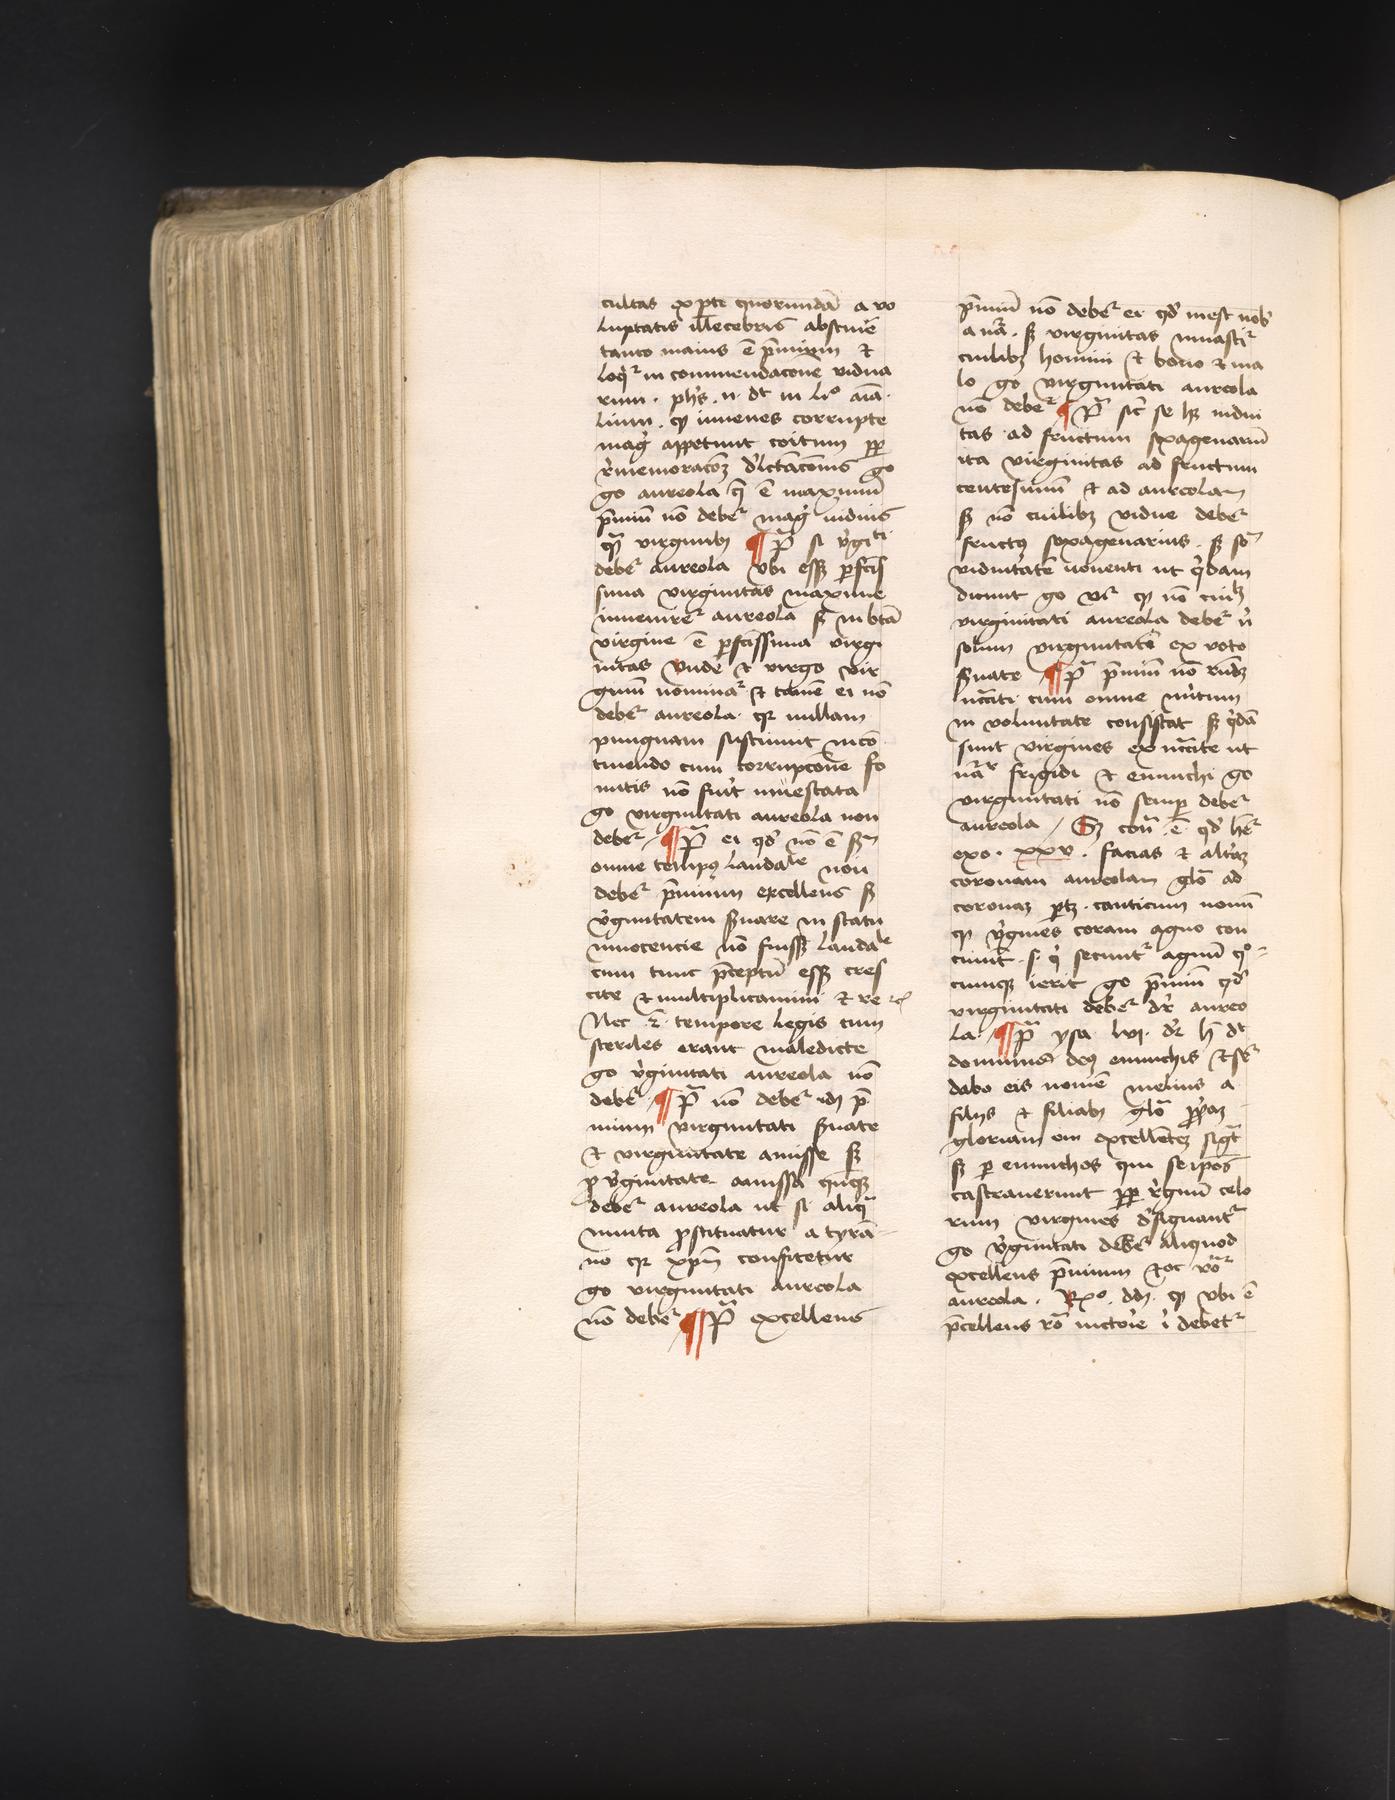 cultas ex pte quorundā a vo
luptatis illecebris abstinē
tanto maius ē p̄mium et
loqr̄ in commendacone vidua
rum . phs . n . dt in li° aīa
lium . qp iuuenes corrupte
mag̛ appetunt coitum pp̄
r̄memoracōꝫ dlc̄tacōnis go
go aureola q̄ ē maximū
p̄miū nō debeꝛ̄ mag̛ uiduis
qᵃ virginibꝰ ¶ Pᵃ si v̄giti
debeꝛ̄ aureola vbi essꝫ pfcis
sima virginitas maxime
inueniret̄ aureola sꝫ in btā
virgine ē pfcissima virgi
nitas Unde et virgo vir
ginū nominaꝛ̄ et tamē ei nō
debeꝛ̄ aureola qꝛ nullam
pungnam sustinuit in cō
tinendo cum corrupcōne fo
mitis nō fuit infestata
go virginitati aureola non
debeꝛ̄ / ¶ Pᵃ ei qd̄ nō ē sm̄
omne tempꝰ laudale non
debeꝛ̄ p̄mium excellens sꝫ
v̄ginitatem s̄uare in statu
innocencie nō fuissꝫ laudale
cum tunc p̄ceptū essꝫ cres
cite et multiplicamini et re rᵉ
Nec ꝛ̄ tempore legis cum
steriles erant maledicte
go v̄ginitati aureola nō
debeꝛ̄ / ¶ Pᵃ nō debeꝛ̄ idꝫ p̄
mium virginitati s̄uate
et virginitate amisse sꝫ
p v̄ginitate amissa qn̄qꝫ
debeꝛ̄ aureola ut si aliqᵃ
inuita p̄stituatur a tyrā
no qꝛ xpm̄ confitetur
go virginitati aureola
nō debeꝛ̄ ¶ Pᵃ excellens
p̄miū nō debeꝛ̄ ei qd̄ inest nob̄
a nᵃ . sꝫ virginitas innasciꝛ̄
cuilibꝫ homini et bono et ma
lo go virginitati aureola
nō debeꝛ̄ ¶ Pᵃ sic̄ se hꝫ uidui
tas ad fructum sexagenariū
ita virginitas ad fructum
centesimū et ad aureolam
sꝫ nō cuilibꝫ vidue debeꝛ̄
fructꝰ sexagenarius . sꝫ so
viduitatē uouenti ut q̄dam
dicunt go vꝛ̄ qp nō cuilꝫ
virginitati aureola debeꝛ̄ n̄
solum virginitati ex voto
s̄uate ¶ Pᵃ p̄miū nō rn̄dꝫ
nc̄citati cum omne m̄itum
in voluntate consistat sꝫ q̄dā
sunt virgines ex nc̄citate ut
nāꝛ̄ frigidi et eunuchi go
virginitati nō semp debeꝛ̄
aureola / Sꝫ cont̄ . ē . qd̄ het̄
exo . xxv . facias et alt̄aꝫ
coronam aureolam glo ad
coronaꝫ ptꝫ . canticum nouū
qp v̄gines coram agno con
cinūt . s . q̄ secuntꝛ̄ agnū q°
cumqꝫ ierit go p̄miū qd̄
virginitati debeꝛ̄ dr̄ aureo
la . ¶ Pᵃ ysa lvi . dꝛ̄ h̄ dt
dominus deꝰ eunuchis
dabo eis nomē melius a
filiis et filiabꝰ glo pp̄aꝫ
gloriam em̄ excellentēꝫ sigᵗ
sꝫ p eunuchos qui se ipos
castrauerunt pp̄ r̄gnū celo
rum virgines d̄signantꝛ̄
go v̄ginitati debeꝛ̄ aliquod
excellens p̄mium
aureola . Rx° . ddꝫ . qp vbi ē
p̄cellens rō uictoīe i debetꝛ̄